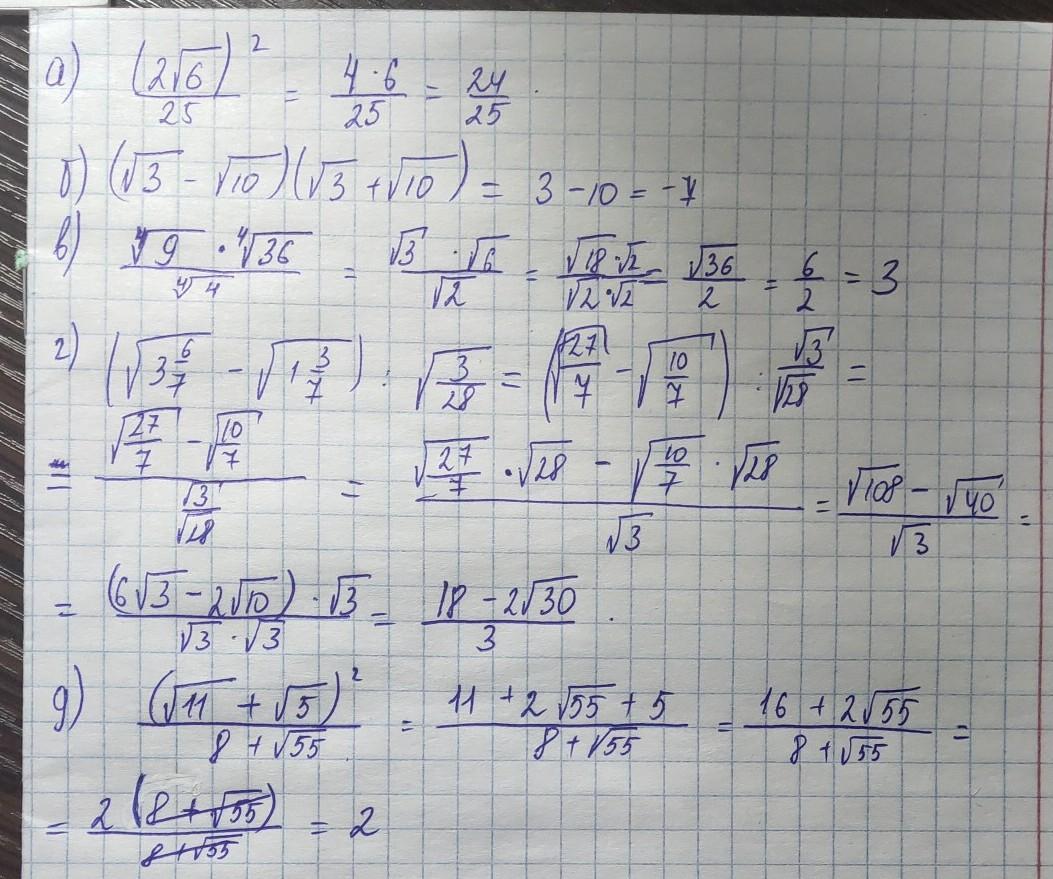 а) (2√6)²/25 = 4·6/25 = 24/25.
б) (√3 - √10)(√3 + √10) = 3 - 10 = -7
в) ∜9 · ∜36/∜4 = √3 · √6/√2 = √18·√2/√2·√2 = √36/2 = 6/2 = 3
г) (√3 6/7 - √1 3/7) : √3/28 = (√27/7 - √10/7) : √3/√28 =
= √27/7 - √10/7/√3/√28 = √27/7 · √28 - √10/7 · √28/√3 = √108 - √40/√3 =
= (6√3 - 2√10) · √3/√3 · √3 = 18 - 2√30/3.
д) (√11 + √5)²/8 + √55 = 11 + 2√55 + 5/8 + √55 = 16 + 2√55/8 + √55 =
= 2(8 + √55)/8 + √55 = 2